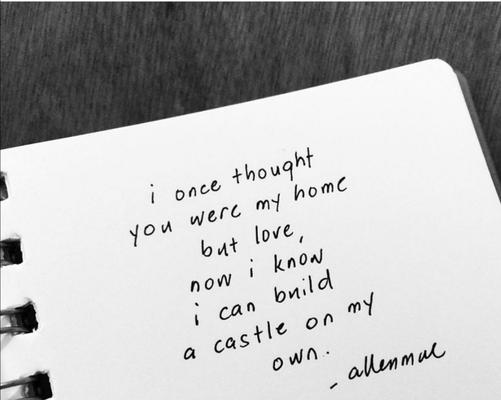 i once thought
you were my home
but love,
now i know
i can build
a castle on my
own.
- allenmue